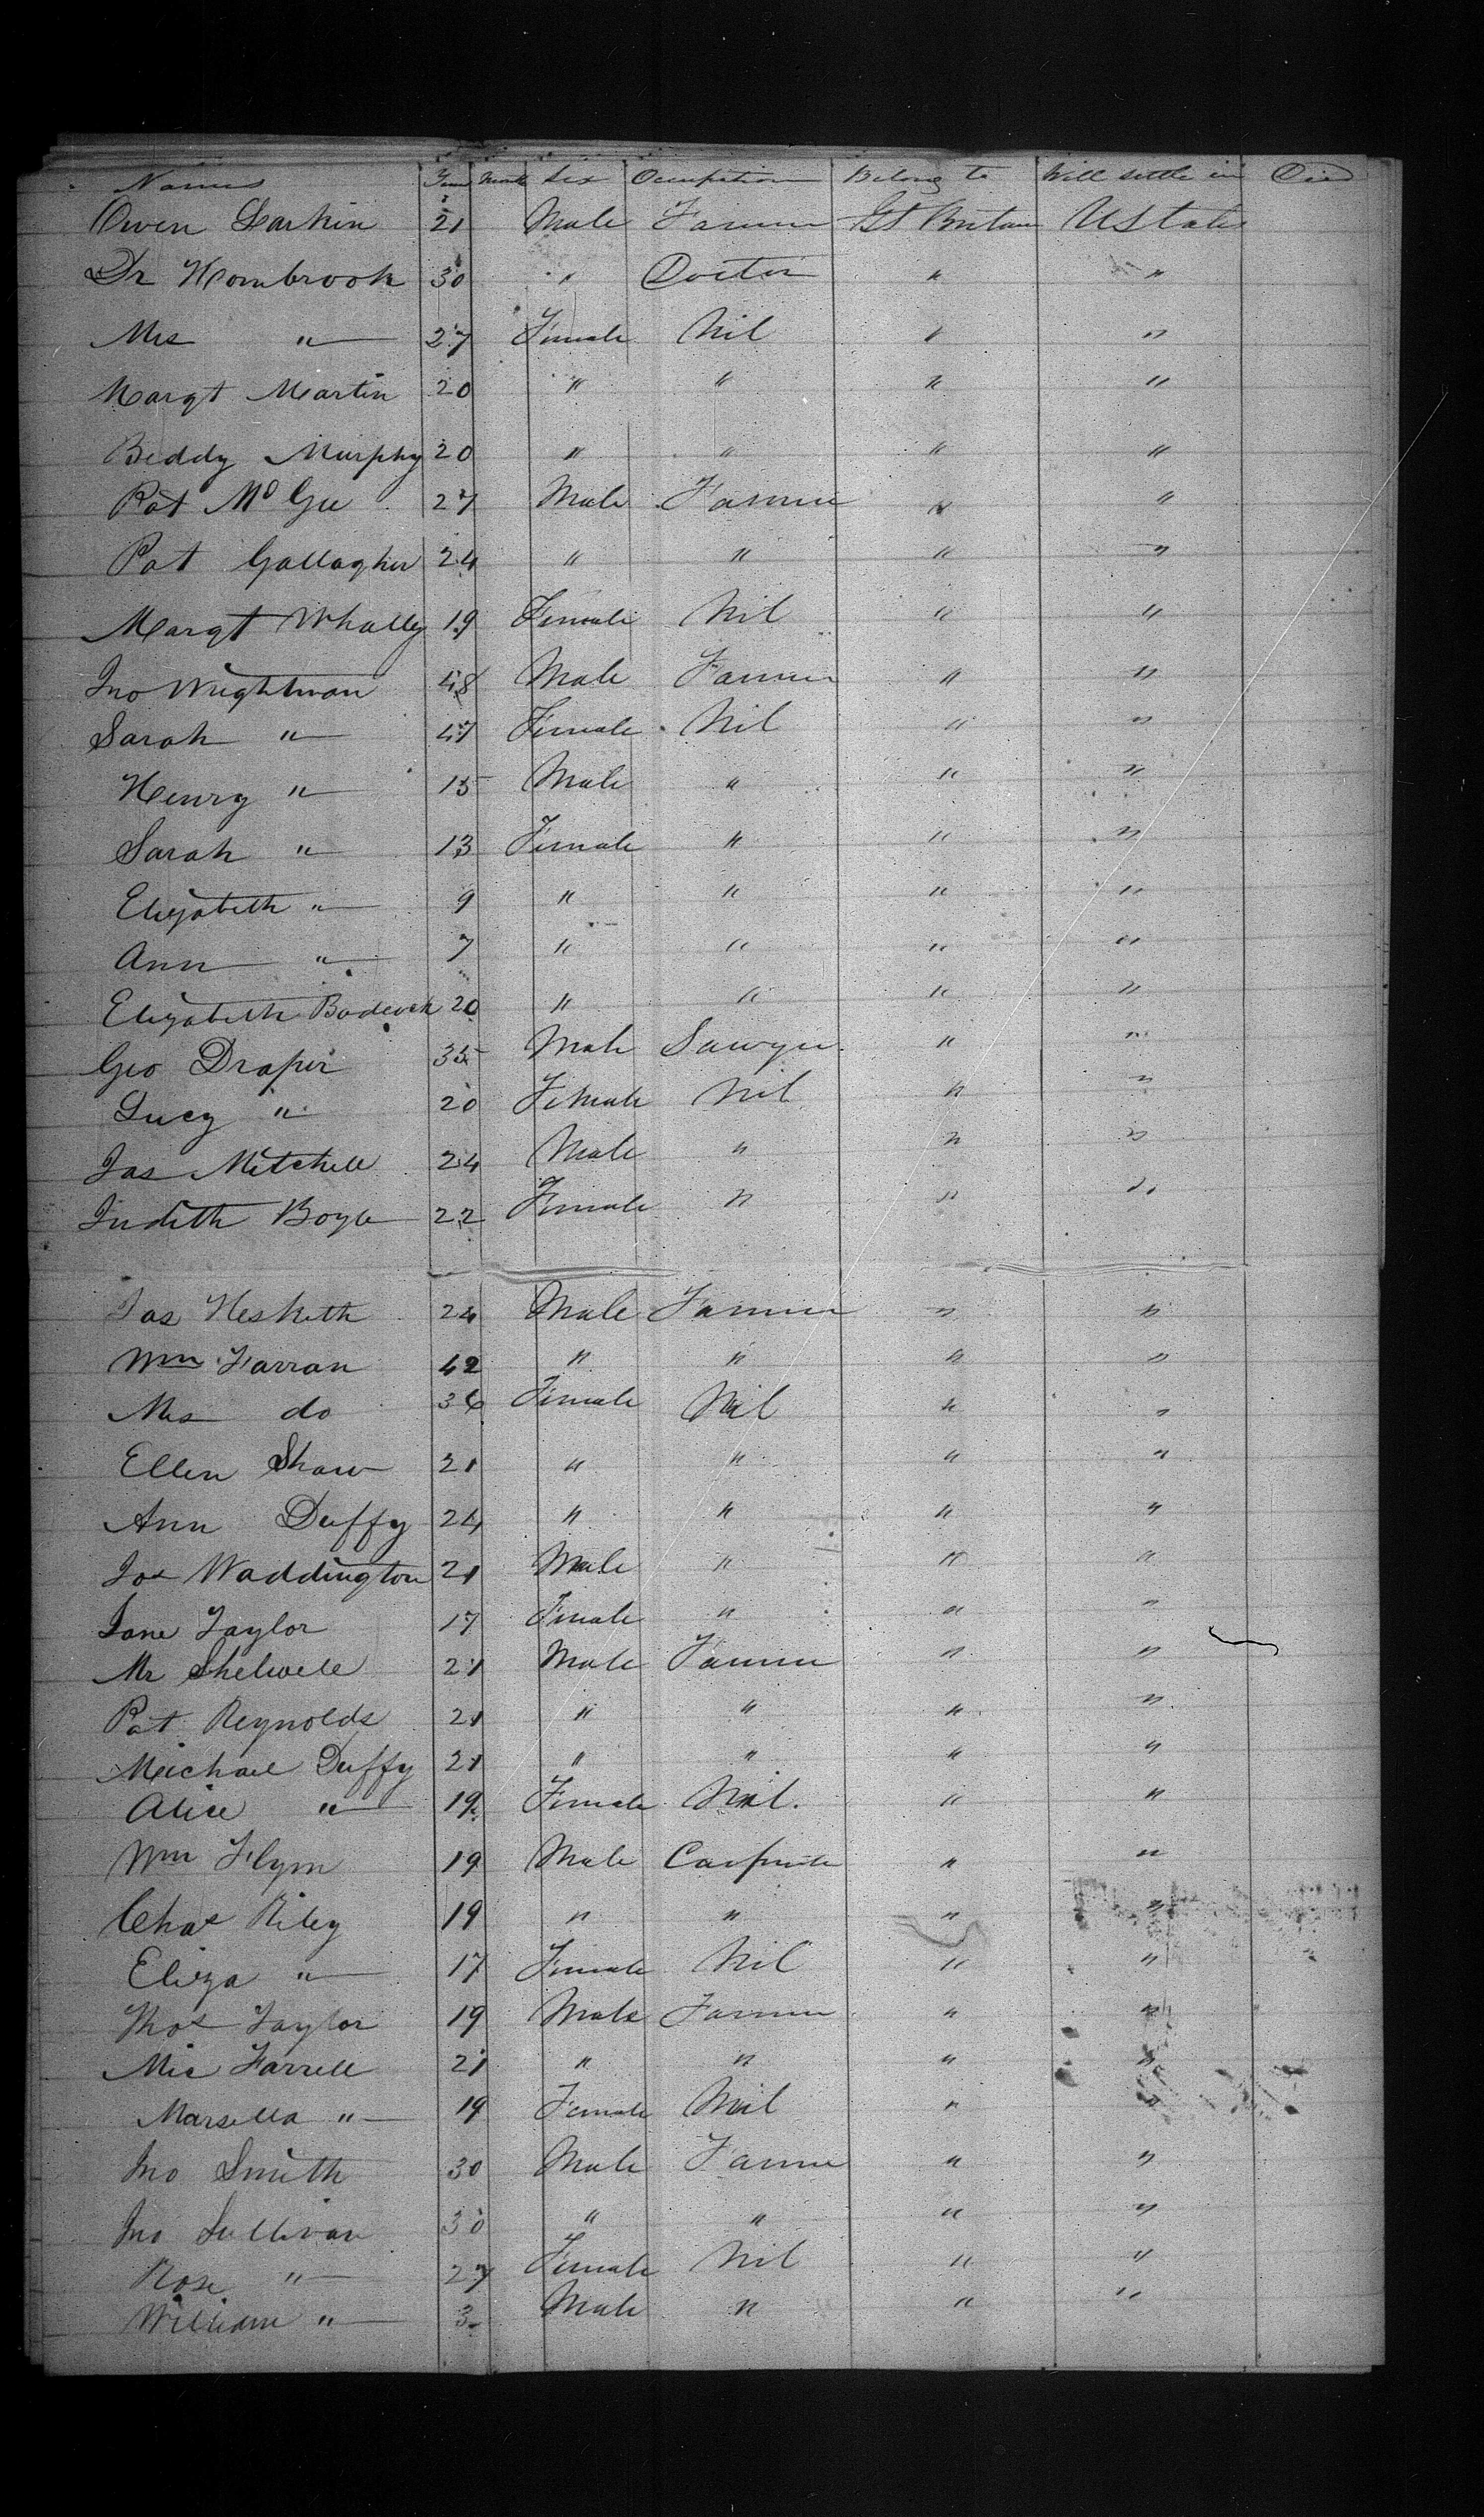 Names Years Month Sex Occupation Belong to Will settle in Died
Owen Larkin 21 Male Farmer Gt Britain U States
Dr Hornbrook 30 " Doctor " "
Mrs " 27 Female Nil " "
Margt Martin 20 " " " "
Biddy Murphy 20 " " " "
Pat McGee 27 Male Farmer " "
Pat Gallagher 24 " " " "
Margt Whalley 19 Female Nil " "
Jno Wrightman 48 Male Farmer " "
Sarah " 47 Female Nil " "
Henry " 15 Male " " "
Sarah " 13 Female " " "
Elizabeth " 9 " " " "
Ann " 7 " " " "
Elizabeth 20 " " " "
Geo Draper 35 Male Sawyer " "
Lucy " 20 Female Nil " "
Jas Mitchell 24 Male " " "
Judith Boyle 22 Female " " "
Jas Hesketh 24 Male Farmer " "
Wm Farran 42 " " " "
Mrs do 36 Female Nil " "
Ellen Shaw 21 " " " "
Ann Duffy 24 " " " "
Jos Waddington 21 Male " " "
Jane Taylor 17 Female " " "
Mr 21 Male Farmer " "
Pat Reynolds 21 " " " "
Michael Duffy 21 " " " "
Alice " 19 Female Nil. " "
Wm Flynn 19 Male Carpenter " "
Chas Riley 19 " " " "
Eliza " 17 Female Nil " "
Thos Taylor 19 Male Farmer " "
Mic Farrell 21 " " " "
Marsella " 19 Female Nil " "
Jno Smith 30 Male Farmer " "
Jno Sullivan 30 " " " "
Rose " 27 Female Nil " "
William " 3 Male " " "